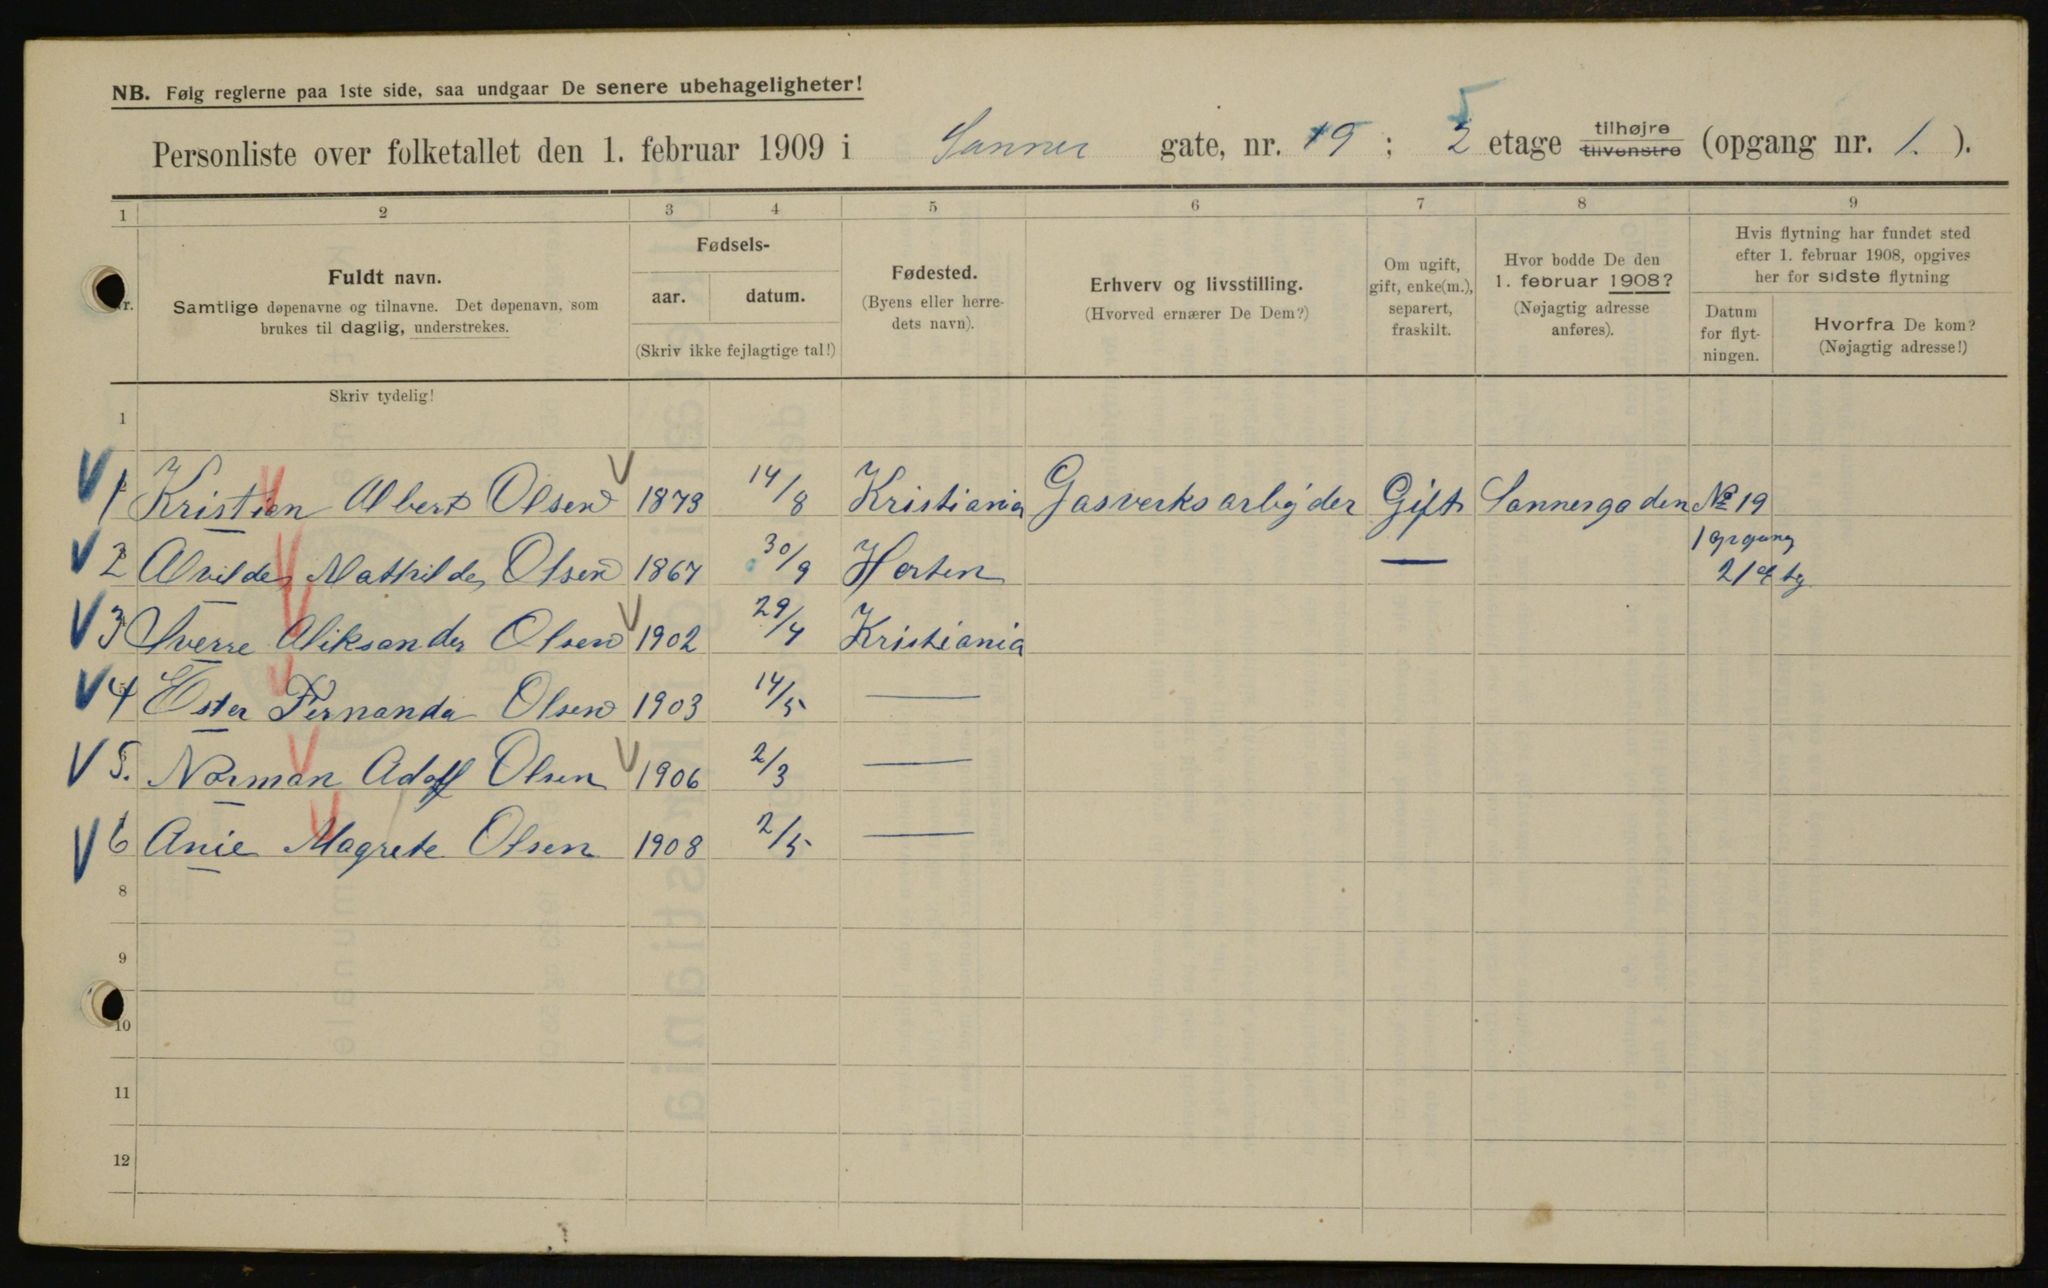 NB. Følg reglerne paa 1ste side, saa undgaar De senere ubehageligheter!
Personliste over folketallet den 1. februar 1909 i Sanner gate, nr. 19 ; 2 etage tilhøjre tilvenstre (opgang nr. 1. ).
5
1 2 3 4 5 6 7 8 9
Nr.
Fuldt navn.
Samtlige døpenavne og tilnavne. Det døpenavn, som
brukes til daglig, understrekes.
Fødsels-
aar. datum.
(Skriv ikke fejlagtige tal!)
Fødested.
(Byens eller herre-
dets navn).
Erhverv og livsstilling.
(Hvorved ernærer De Dem?)
Om ugift,
gift, enke(m.),
separert,
fraskilt.
Hvor bodde De den
1. februar 1908?
(Nøjagtig adresse
anføres).
Hvis flytning har fundet sted
efter 1. februar 1908, opgives
her for sidste flytning
Datum
for flyt-
ningen.
Hvorfra De kom?
(Nøjagtig adresse!)
Skriv tydelig!
1
1 Kristian Albert Olsen 1873 14/8 Kristiania Gasverksarbejder Gift Sannergaden No 19
1 opgang
2 Alvilde Mathilde Olsen 1867 30/9 Horten — 2 etg
3 Sverre Aliksander Olsen 1902 29/4 Kristiania
4 Ester Fernanda Olsen 1903 14/5 —
5. Norman Adolf Olsen 1906 2/3 —
6 Anie Magrete Olsen 1908 2/5 —
8
9
10
11
12